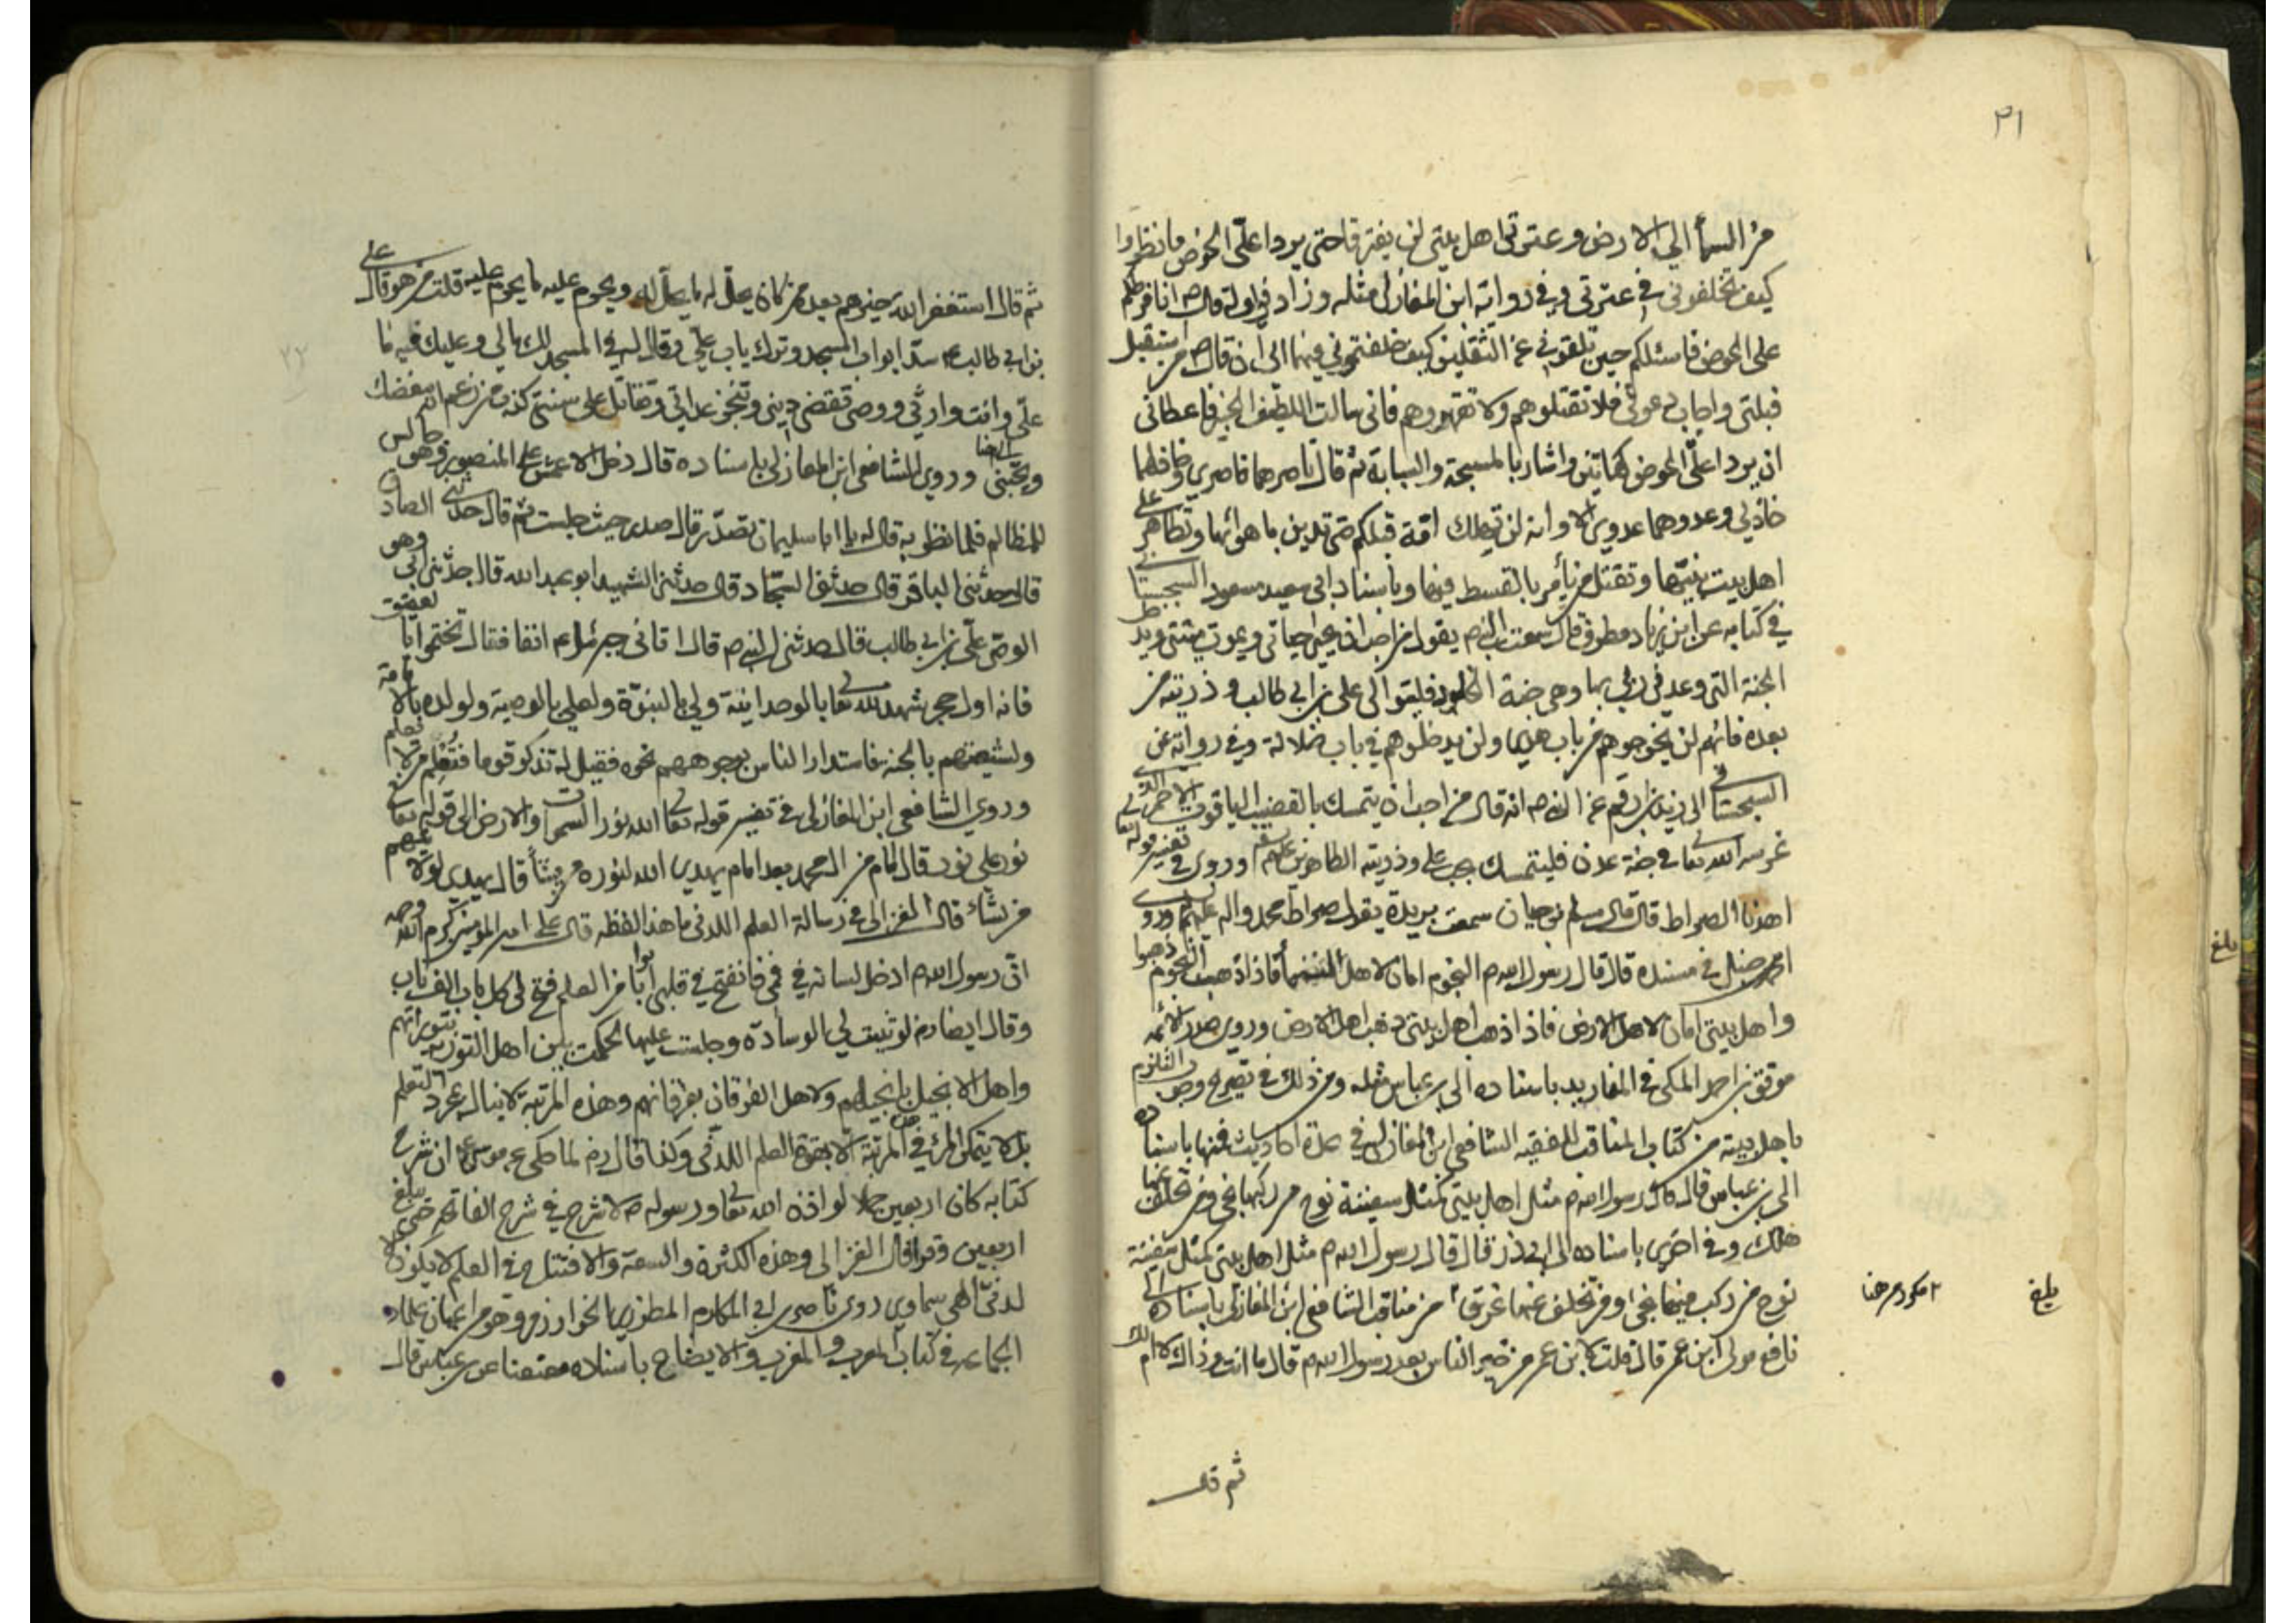 ٣١
من السمآ الى الارض وعترتى اهل بيتى لن يفترقا حتى يردا علىّ الحوض فانظروا
كيف تخلفونى فى عترتى وفى رواية ابن المغازلى مثله وزاد فى اوله قال ص انا فرطكم
على الحوض فاسئلكم حين تلقونى عن الثقلين كيف خلفتمونى فيهما الى ان قال ص من استقبل
قبلتى واجاب دعوتى فلا تقتلوهم ولا تقهروهم فانى سالت اللطيف الخبير فاعطانى
ان يردا علىّ الحوض كهاتين واشار بالمسبحة والسبابة ثم قال ناصرهما ناصرى وخاذلهما
خاذلى وعدوهما عدوى الا وانه لن تهلك امّة قبلكم حتى تدين باهوائها وتظاهر على
اهل بيت نبيّها وتقتل من يأمر بالقسط فيها وباسناد ابى سعيد مسعود السجستانى
فى كتابه عن ابن زياد مطرف قال سمعت النبى ص يقول من احب ان يحيى حياتى ويموت ميتتى ويدخل
الجنة التى وعدنى ربى بها وهى جنة الخلود فليتوالى على بن ابى طالب وذريته من
بعده فانهم لن يخرجوهم من باب هدى ولن يدخلوهم فى باب ضلالة وفى رواية عن
السجستانى الى زيد بن ارقم عن النبى ص انه قال من احب ان يتمسك بالقضيب الياقوت الاحمر الذى
غرسه الله تعالى فى جنة عدن فليتمسك بحب على وذريته الطاهرين عليهم وروى فى تفسير قوله تعالى
اهدنا الصراط قال قال مسلم بن حيان سمعت بريدة يقول صراط محمد واله عليهم وروى
احمد حنبل فى مسنده قال قال رسول الله ص النجوم امان لاهل السمآ فاذا ذهبت النجوم ذهبوا
واهل بيتى امان لاهل الارض فاذا ذهب اهل بيتى ذهب اهل الارض وروى صدر الائمه
موفق بن احمد المكى فى باسناده الى ابن عباس مثله ومن ذلك فى تصريح وجوب التلزم
باهل بيته من كتاب المناقب للفقيه الشافعى ابن المغازلى فى عدة احاديث فمنها باسناده
الى ابن عباس قال قال رسول الله ص مثل اهل بيتى كمثل سفينة نوح من ركبها نجى ومن تخلف عنها
هلك وفى اخرى باسناده الى ابى ذر قال قال رسول الله ص مثل اهل بيتى كمثل سفينة
نوح من ركب فيها نجى ومن تخلف عنها غرق من مناقب الشافعى ابن المغازلى باسناده الى
نافع مولى ابن عمر قال قلت لابن عمر من خير الناس بعد رسول الله ص قال ما انت وذاك لا ام لك
ثم قال
بلغ
بلغ
ثم قال استغفر الله خيرهم بعده من كان يحلّ له ما يحلّ له ويحرم عليه ما يحرم عليه قلت من هو قال على
بن ابى طالب ع سدّ ابواب المسجد وترك باب على وقال له فى المسجد لك ما لى وعليك فيه ما
علىّ وانت وارثى ووصى تقضى دينى وتنجز عداتى وتقاتل على سنتى كذب من زعم انه يبغضك
ويحبّنى وروى الشافعى ابن المغازلى باسناده قال دخل الاعمش على المنصور وهو جالس
للمظالم فلما نظر به قال له يا ابا سليمان تصدّر قال صدر حيث جلست ثم قال حدثنى الصادق
قال حدثنى الباقر قال حدثنى السجّاد قال حدثنى الشهيد ابو عبد الله قال حدّثنى ابى وهو
الوصى علىّ بن ابى طالب قال حدثنى النبى ص قال اتانى جبرئيل ع انفا فقال تختموا بالعقيق
فانه اول حجر شهد لله تعالى بالوحدانية ولى بالنبوّة ولعلى بالوصية ولولده بالامامة
ولشيعتهم بالجنه فاستدار الناس بوجوههم نحوه فقيل له تذكر قوما فتُعلم من لا نعلم
وروى الشافعى ابن المغازلى فى تفسير قوله تعالى الله نور السموات والارض الى قوله تعالى
نور على نور قال امام من ال محمد بعد امام يهدى الله لنوره من يشآ قال يهدى
من نشاء قال الغزالى فى رسالة العلم اللدنى ما هذا لفظه قال على امير المؤمنين كرم الله وجهه
انّ رسول الله ص ادخل لسانه فى فمى فانفتح فى قلبى ابوابا من العلم فتح لى كل باب الف باب
وقال ايضا رض لو ثنيت لى الوسادة وجلست عليها لحكمت بين اهل التورية بتوراتهم
واهل الانجيل بانجيلهم ولاهل الفرقان بفرقانهم وهذه المرتبة لا ينال بمجرد التعلم
بل لا يتمكن المرئ فى هذه المرتبة الا بقوة العلم اللدنّى وكذا قال رض لما حكى عن موسى ع ان شرح
كتابه كان اربعين حملا لو اذن الله تعالى ورسوله ص لا شرح فى شرح الفاتحة حتى يبلغ
اربعين وقرا قال الغزالى وهذه الكثرة والسعة والافتتاح فى العلم لا يكون الا
لدنيّا الهى سماوى روى ناصر بن ابى المكارم المطرزى الخوارزمى وهو من اعيان علماء
الجماعه فى كتاب المعرب والمغرب والايضاح باسناده معنعنا عن ابن عباس قال